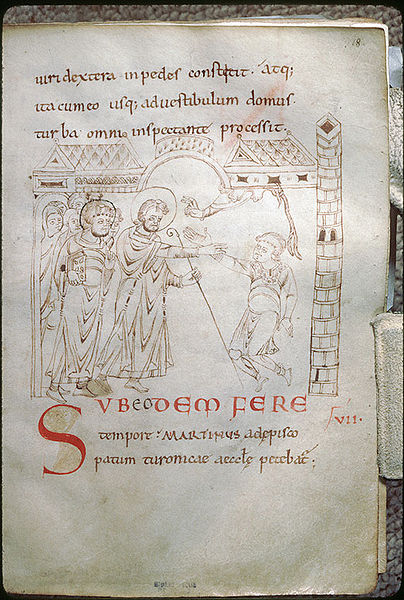 18.
uiri dextera in pedes constitit · atq;
ita cum eo usq; ad uestibulum domus
turba omni inspectante processit.
SUB EODEM FERE
VII.
tempore · MARTINUS ad episco
patum turonicae aeccle petebat.